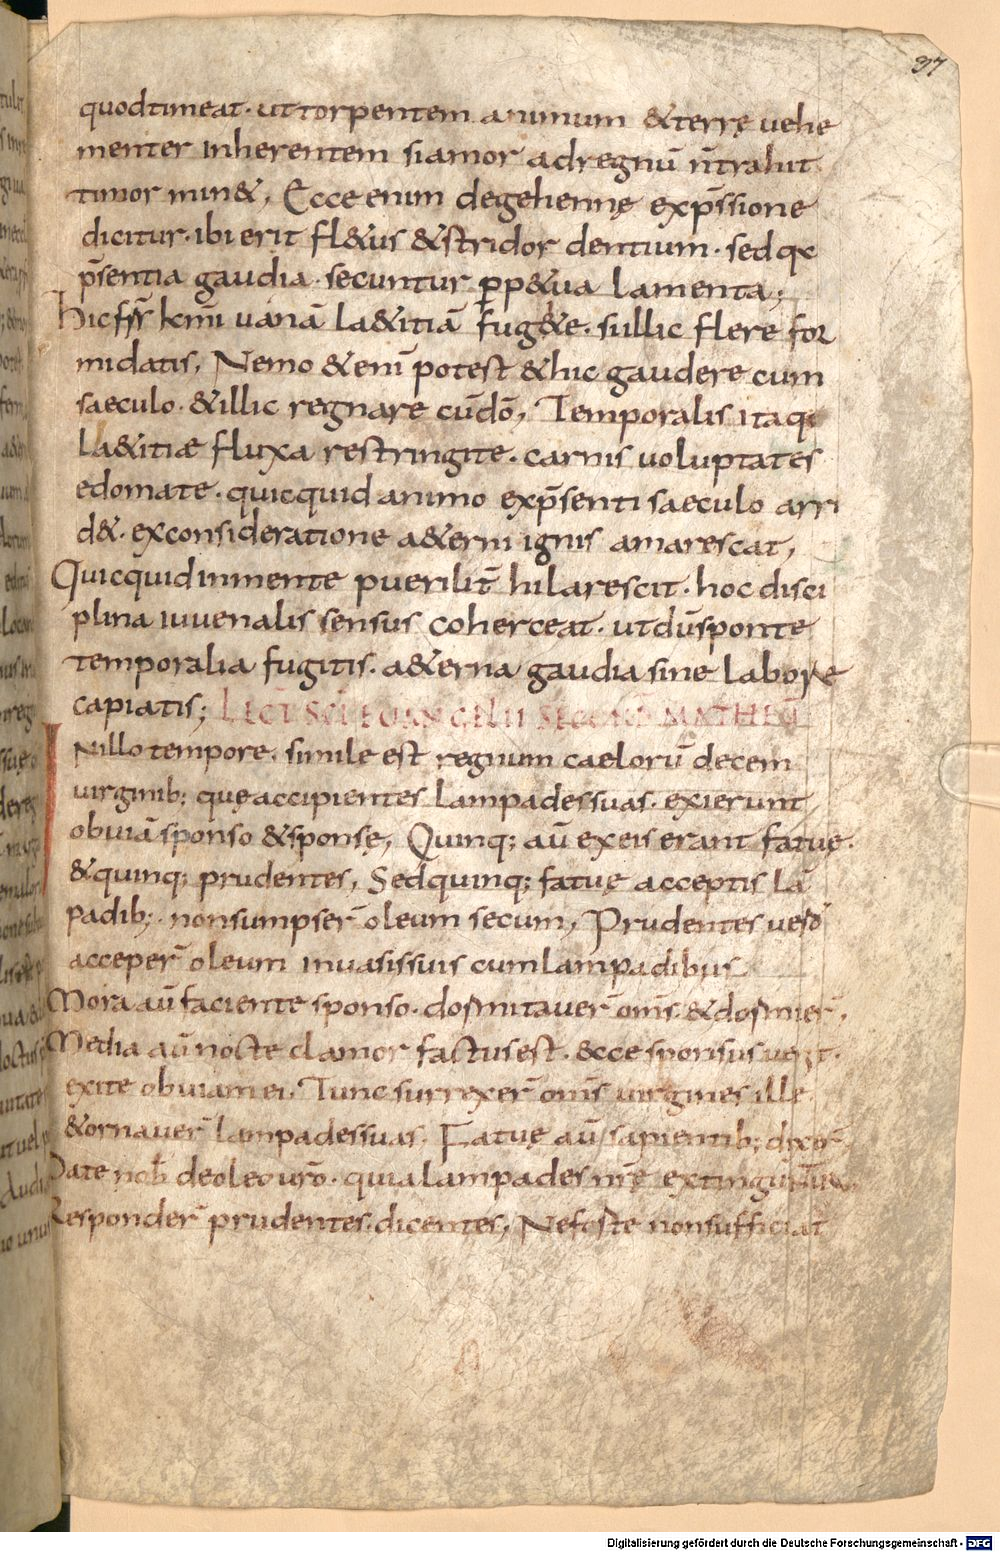 37
quodtimeat · uttorpentem animum &terrę vehe
menter Inherentem siamor adregnū n̄trahit
timor min&, Ecce enim degehennę exp̄ssione
dicitur · ibi erit fl&us &stridor dentium · sed qꝛ
p̄sentia gaudia · secuntur ꝑp&ua lamenta;
hic fr̄s km̄i vanā la&itiā fug&e · sillic flere for
midatis, Nemo &eni potest &hic gaudere cum
saeculo · &illic regnare cūdō, Temporalis itaq;
la&itiæ fluxa restringite · carnis voluptates
edomate · quicquid animo exp̄senti saeculo arri
d& · exconsideratione a&erni ignis amarescat,
Quicquid inmente puerilit̄ hilarescit · hoc disci
plina iuvenalis sensus coherceat · utdūsponte
temporalia fugitis · a&erna gaudia sine labore
capiatis; LECT SCI EUANGELII SECUND MATHEU
INillo tempore · simile est regnum caelorū decem
virginib; quę accipientes lampadessuas · exierunt
obviā sponso &sponsę, Quinq; aū exeis erant fatuę ·
&quinq; prudentes, Sedquinq; fatuę acceptis lā
padib; · nonsumpser̄ oleum secum, Prudentes vero
acceper̄ oleum invasissuis cumlampadibus
Mora aū faciente sponso · dormitaver̄ om̄s · &dormier̄,
Media aū nocte clamor factusest · &cce sponsus venit ·
exite obviam ei · Tunc surrexer̄ om̄s virgines ille
&ornaver̄ lampadessuas · Fatuę aū sapientib; dixer̄,
Date nob̄ deoleo ur̄o · quia lampades nr̄ę extinguntur,
Responder̄ prudentes · dicentes, Neforte nonsufficiat
Digitalisierung gefördert durch die Deutsche Forschungsgemeinschaft - DFG